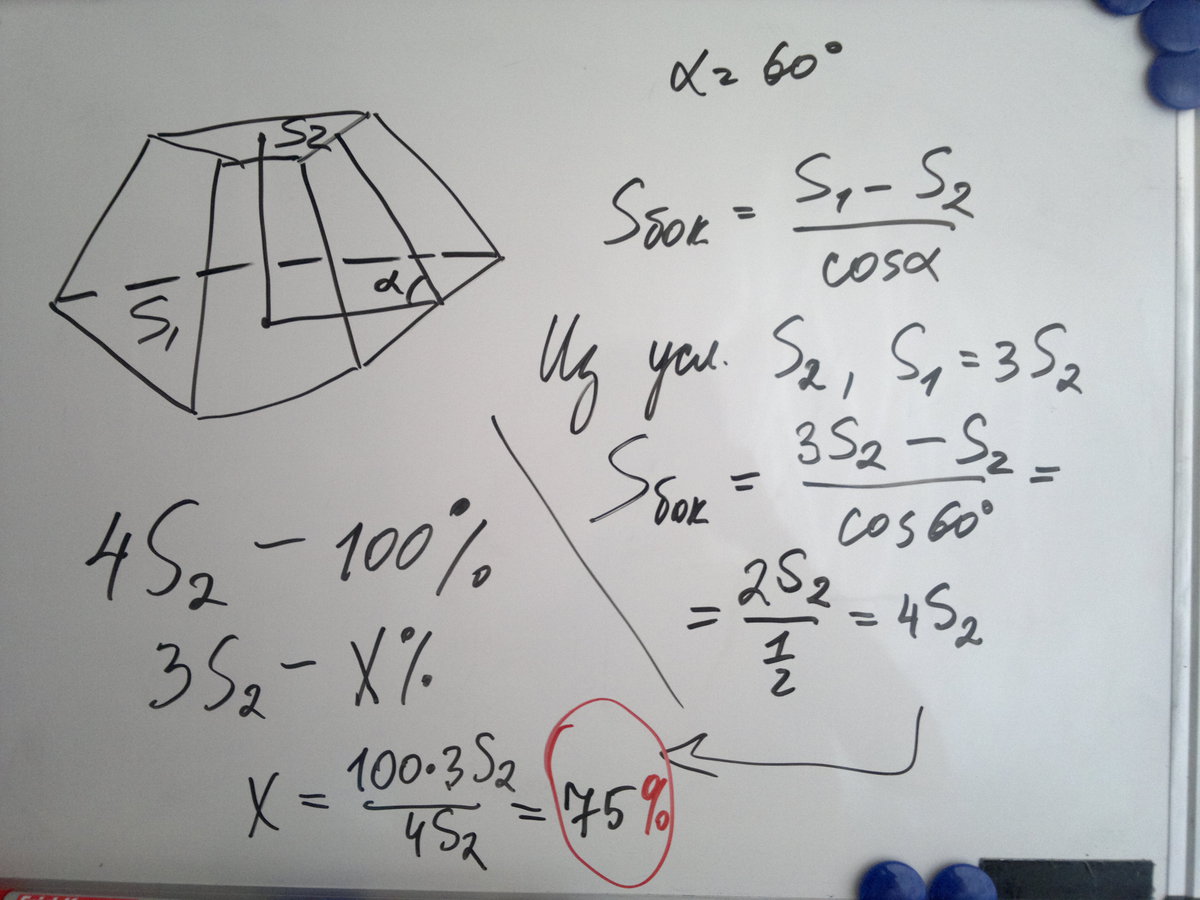 α = 60°
S2
α
S₁
Sбок = (S₁ - S₂) / cosα
Из усл. S₂, S₁ = 3S₂
Sбок = (3S₂ - S₂) / cos60° =
= 2S₂ / (1/2) = 4S₂
4S₂ - 100%
3S₂ - X%
X = (100·3S₂) / 4S₂ = 75%